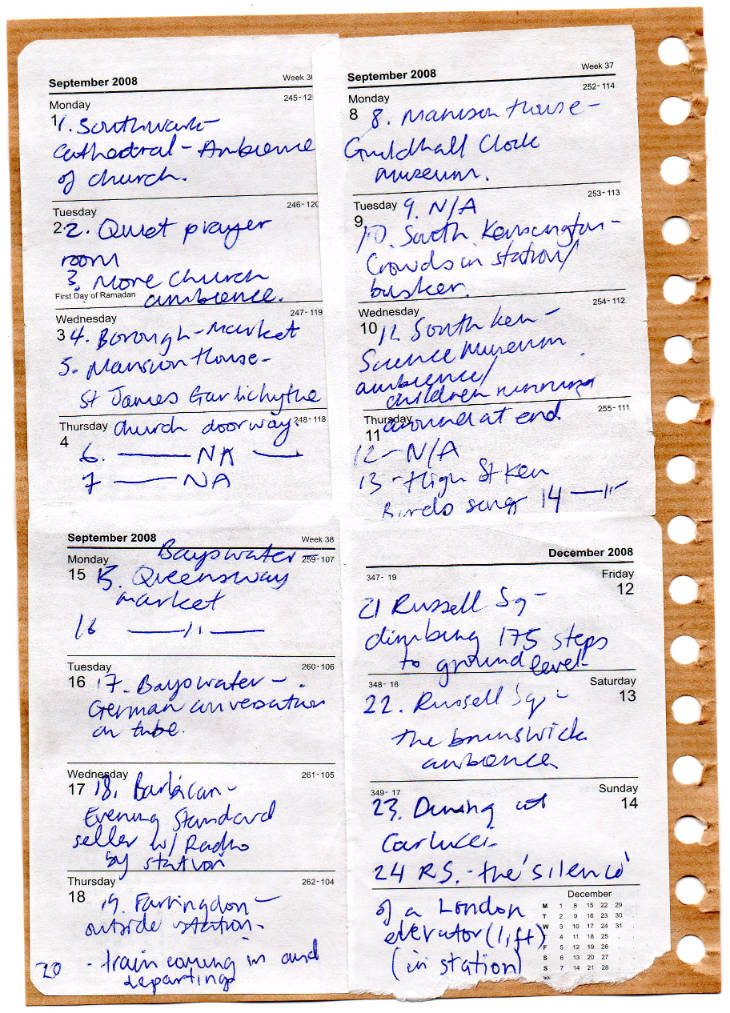 September 2008 Week 3
Monday 245-12
1 1. Southwark-
Cathedral - Ambience
of church.
Tuesday 246-120
2 2. Quiet prayer
room
3. More church
First Day of Ramadan ambience.
Wednesday 247-119
3 4. Borough-Market
5. Mansion House -
St James Garlickhythe
Thursday church doorway. 248-118
4
6. —— NA ——
7 —— NA
September 2008 Week 37
Monday 252-114
8 8. Mansion House -
Guildhall Clock
museum.
Tuesday 9. N/A 253-113
9
10. South Kensington -
Crowds in station/
busker.
Wednesday 254-112
10 11. South Ken -
Science Museum
ambience/
children running
Thursday around at end. 255-111
11
12 - N/A
13 - High St Ken
Birds song 14 —11-
September 2008 Week 38
Bayswater -
Monday 259-107
15 15. Queensway
market
16 —11—
Tuesday 260-106
16 17. Bayswater -
German conversation
on tube.
Wednesday 261-105
17 18. Barbican -
Evening Standard
seller w/ Radio
by station
Thursday 262-104
18 19. Farringdon -
outside station.
20 - train coming in and
departing
December 2008
347- 19 Friday
12
21 Russell Sq -
climbing 175 steps
to ground level-
348- 18 Saturday
13
22. Russell Sq -
the brunswick
ambience
349- 17 Sunday
14
23. Dining at
Carlucci-
24 R.S. - the 'silence'
of a London
elevator (lift)
(in station)
December
M 1 8 15 22 29
T 2 9 16 23 30
W 3 10 17 24 31
4 11 18 25
F 5 12 19 26
S 6 13 20 27
S 7 14 21 28